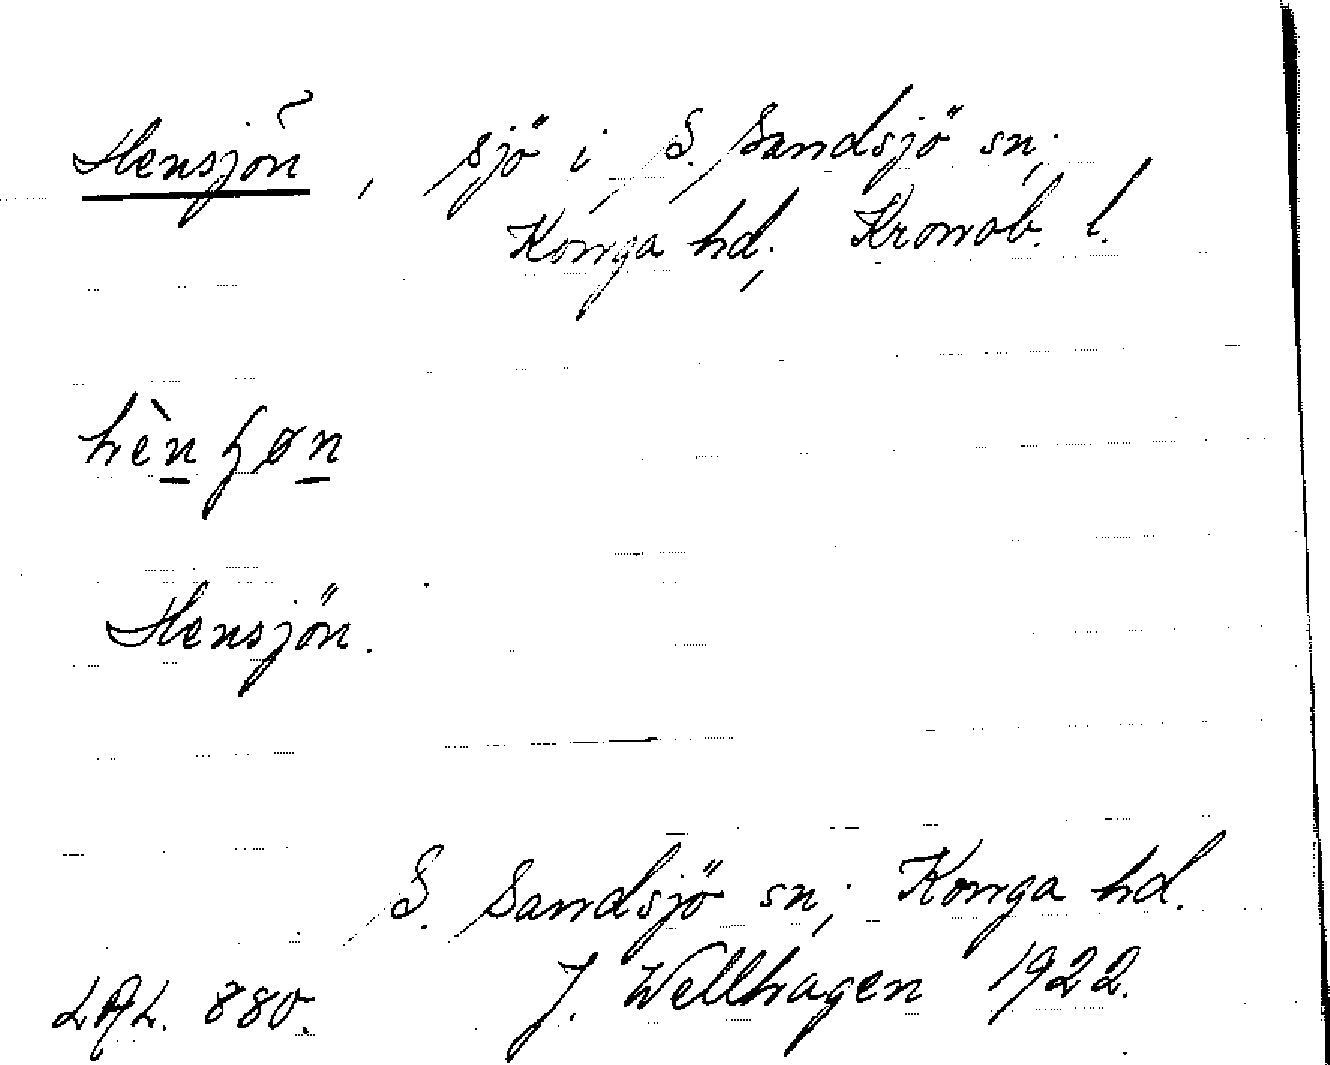 Hensjön, sjö i S. Sandsjö sn,
Konga hd, Kronob. l.
hèn ɧøn
Hensjön.
S. Sandsjö sn, Konga hd.
J. Wellhagen 1922.